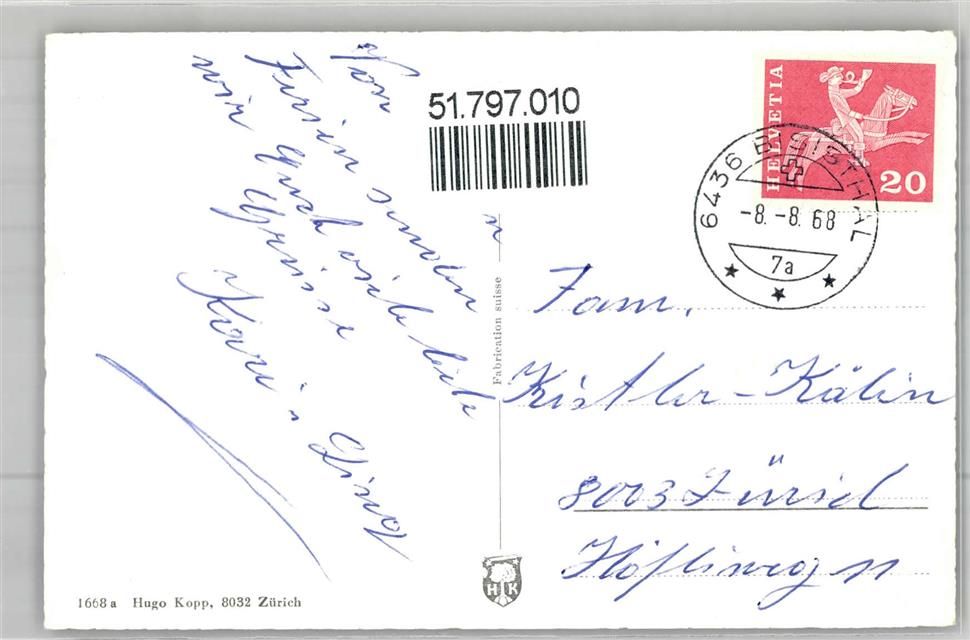 Von
Ferien senden
wir Euch viele liebe
Grüsse
Kari u Lisvt
51.797.010
HELVETIA
20
6436 BISISTHAL
-8.-8.68
7a
Fabrication suisse
Fam.
Kistler-Kälin
8003 Zürich
Höfliweg 11
HK
1668 a Hugo Kopp, 8032 Zürich